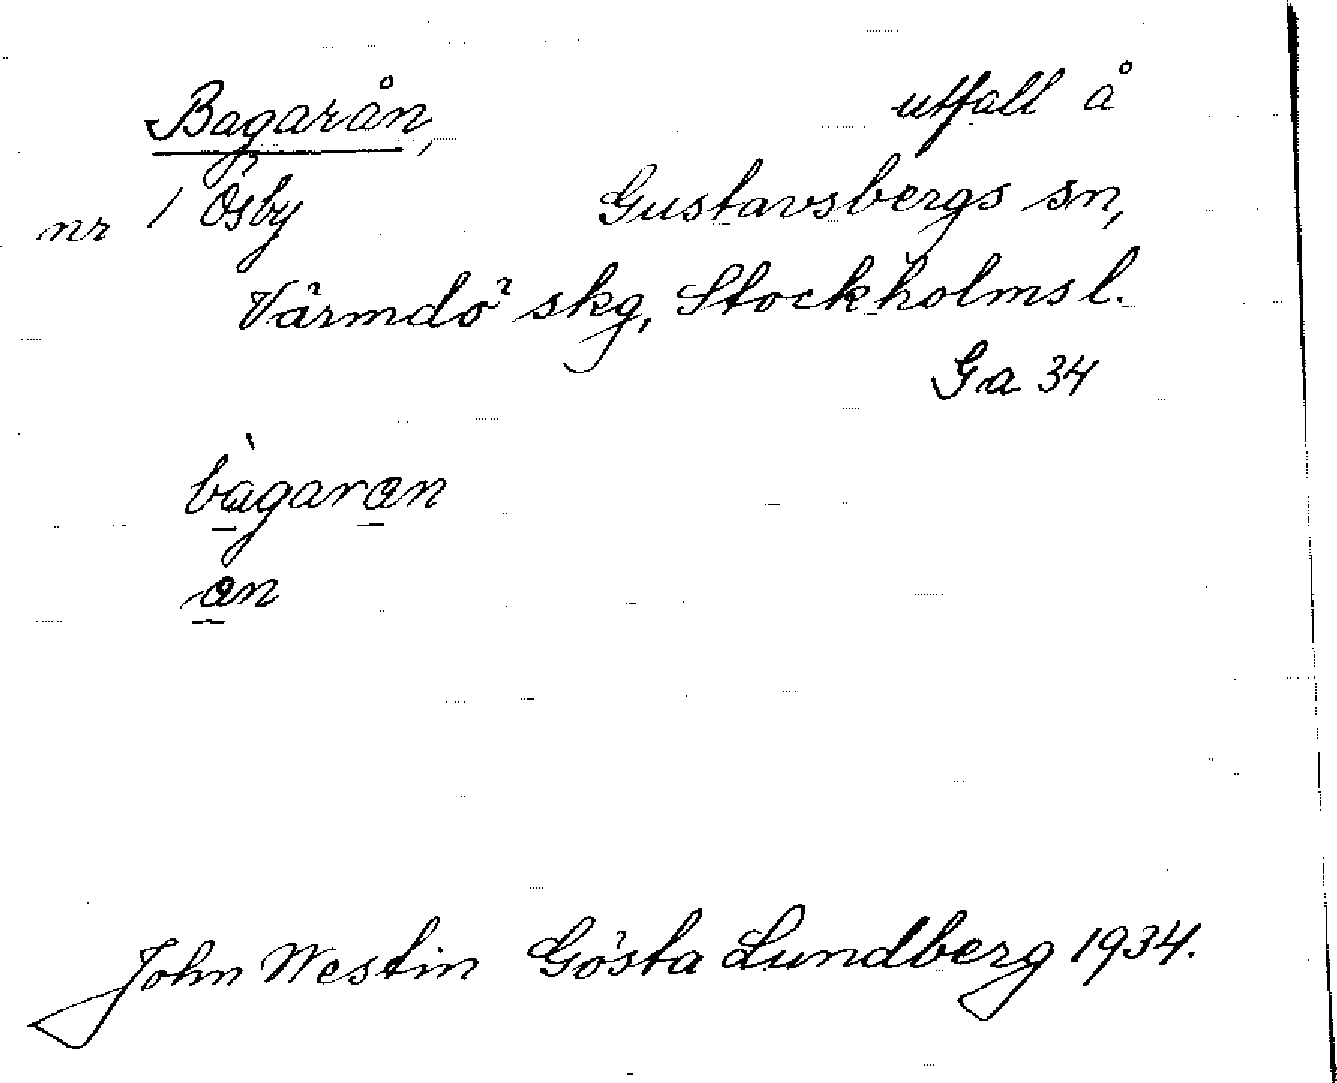 Bagarån, utfall å
nr 1 Ösby Gustavsbergs sn,
Värmdö skg, Stockholms l.
Ga 34
bàgaran
an
John Westin Gösta Lundberg 1934.